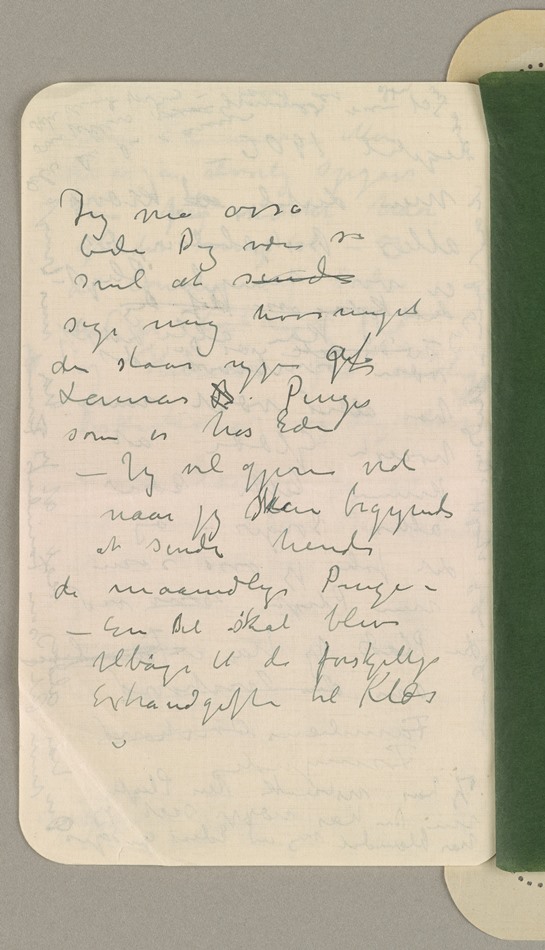 Jeg maa ogsaa
bede Dig være saa
snil at sende
sige meig hvormeget
der staar igjen af
Lauras Penge
som er hos Eder
— Jeg vil gjerne vide
naar jeg skal begynde
at sende hende
de maanedlige Penge –
— En Del skal blive
tilbage til de forskjellige
Extraudgifter til Klæs